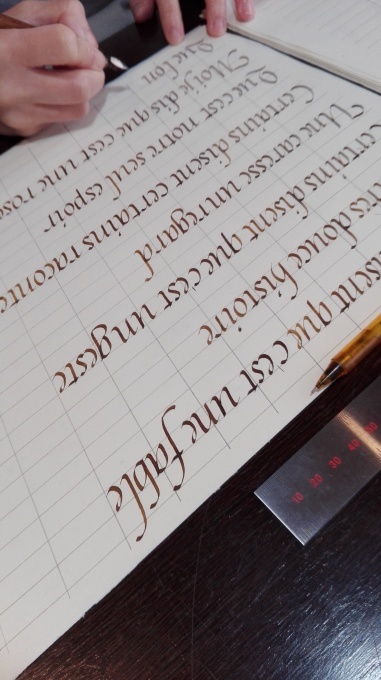 isent que c'est une fable
très douce histoire
Certains disent que c'est un geste
Une caresse un regard
Certains disent certains raconte
Que c'est notre seul espoir
Moi je dis que c'est une rose
Que l'on
10 20 30 40 50